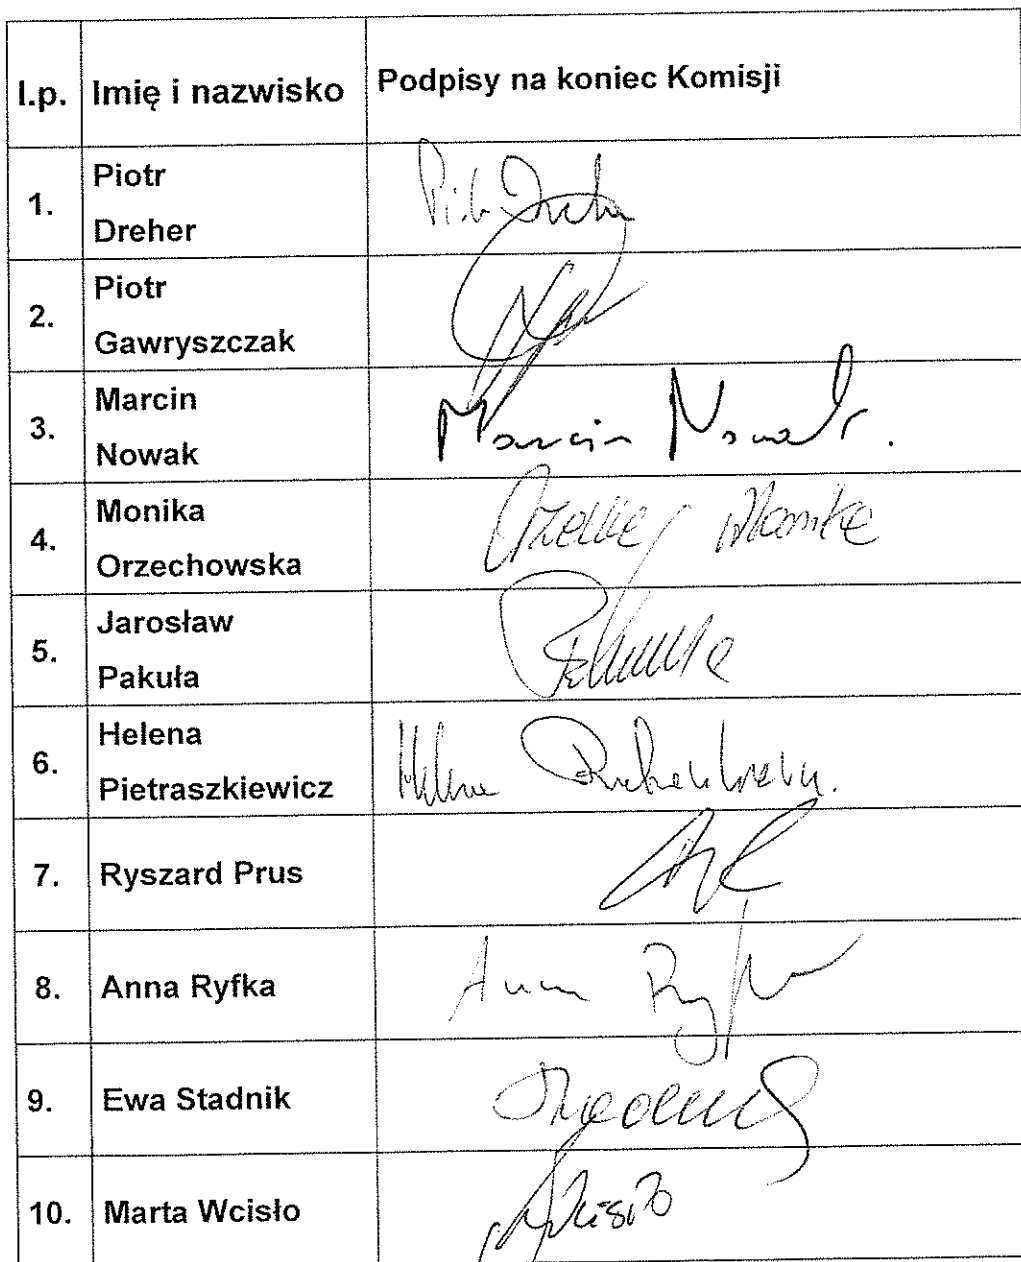 l.p. Imię i nazwisko Podpisy na koniec Komisji
1. Piotr
Dreher
2. Piotr
Gawryszczak
3. Marcin
Nowak Marcin Nowak.
4. Monika
Orzechowska
5. Jarosław
Pakuła
6. Helena
Pietraszkiewicz Helena
7. Ryszard Prus
8. Anna Ryfka Anna Ryfka
9. Ewa Stadnik
10. Marta Wcisło Wcisło